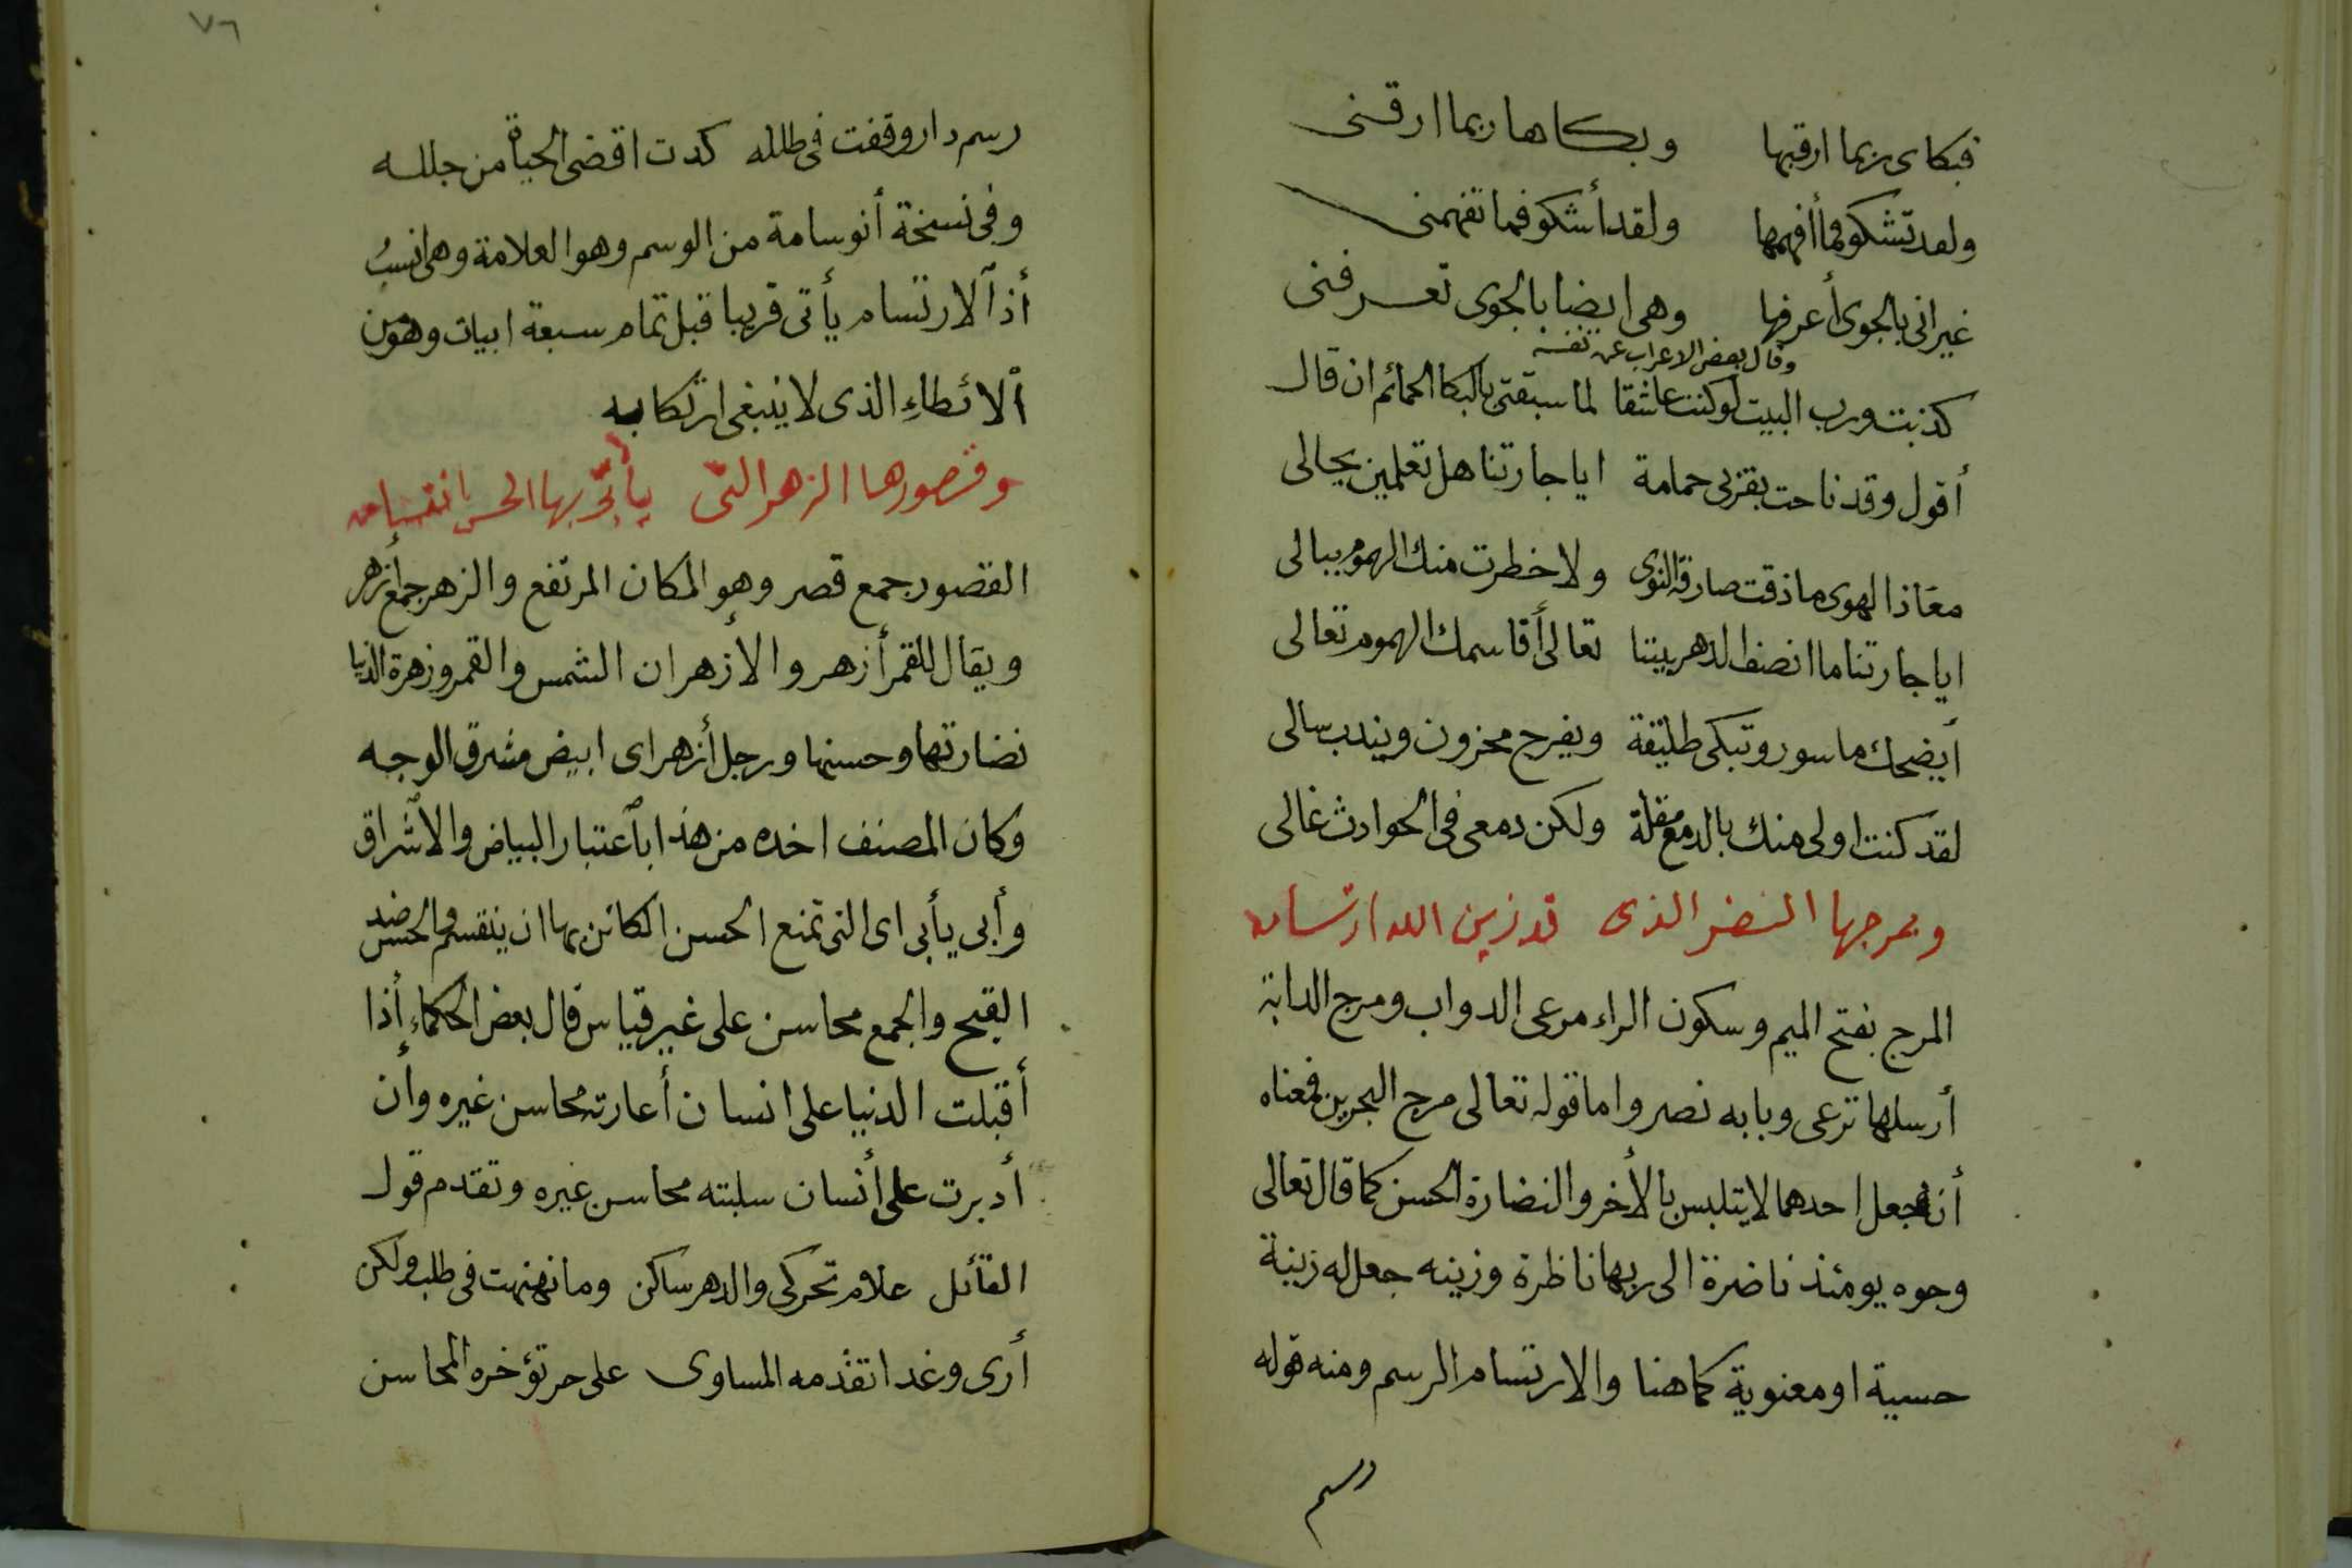 فبكاى ربما ارقها وبكاها ربما ارقنى
ولقد تشكو فما أفهمها ولقد أشكو فما تفهمنى
غير انى بالجوى أعرفها وهى ايضا بالجوى تعرفنى
وقال بعض الاعراب عن نفسه
كذبت ورب البيت لو كنت عاشقا لما سبقتنى بالبكا الحمائم ان قال
أقول وقد ناحت بقربى حمامة ايا جارتنا هل تعلمين بحالى
معاذ الهوى ما ذقت صارقة النوى ولا خطرت منك الهموم ببالى
ايا جارتنا ما انصف الدهر بيننا تعالى أقاسمك الهموم تعالى
أيضحك ماسور وتبكى طليقة ويفرح محزون ويندب سالى
لقد كنت اولى منك بالدمع مقلة ولكن دمعى فى الحوادث غالى
وبمرجها النضر الذى قد زين الله ارتسامه
المرج بفتح الميم وسكون الراء مرعى الدواب ومرج الدابة
أرسلها ترعى وبابه نصر واما قوله تعالى مرج البحرين فمعناه
أنه جعل احدهما لا يتلبس بالأخر والنضارة الحسن كما قال تعالى
وجوه يومئذ ناضرة الى ربها ناظرة وزينه جعل له زينة
حسية او معنوية كما هنا والارتسام الرسم ومنه قوله
رسم
٧٦
رسم دار وقفت فى طلله كدت اقضى الحياة من جلله
وفى نسخة أنوسامة من الوسم وهو العلامة وهى انسب
أذ الارتسام يأتى قريبا قبل تمام سبعة ابيات وهو من
الائطاء الذى لا ينبغى ارتكابه
وقصورها الزهر التى يأبى بها الحسن انقسامه
القصور جمع قصر وهو المكان المرتفع والزهر جمع أزهر
ويقال للقمر أزهر والأزهران الشمس والقمر وزهرة الدنيا
نضارتها وحسنها ورجل أزهر اى ابيض مشرق الوجه
وكان المصنف اخده من هذا باعتبار البياض والاشراق
وأبى يأبى اى التى تمنع الحسن الكائن بها ان ينقسم والحسن ضد
القبح والجمع محاسن على غير قياس قال بعض الحكماء إذا
أقبلت الدنيا على انسان أعارته محاسن غيره وأن
أدبرت على أنسان سلبته محاسن غيره وتقدم قول
القائل علام تحركى والدهر ساكن وما نهنهت فى طلب ولكن
أرى وغدا تقدمه المساوى على حر تؤخره المحاسن